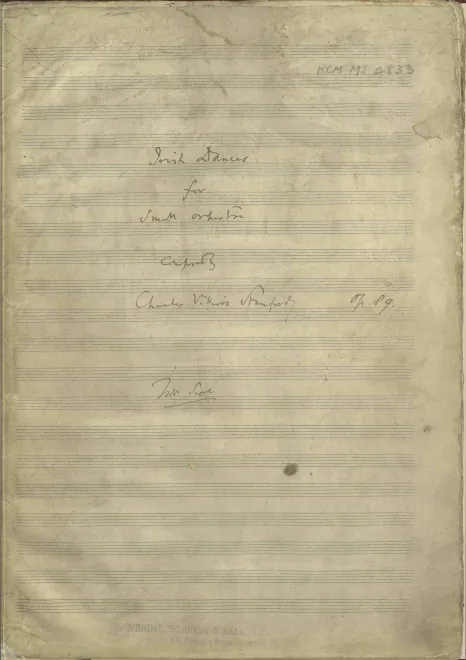 RCM MS 4833
Irish Dances
for
Small Orchestra
composed by
Charles Villiers Stanford Op. 89.
Full Score